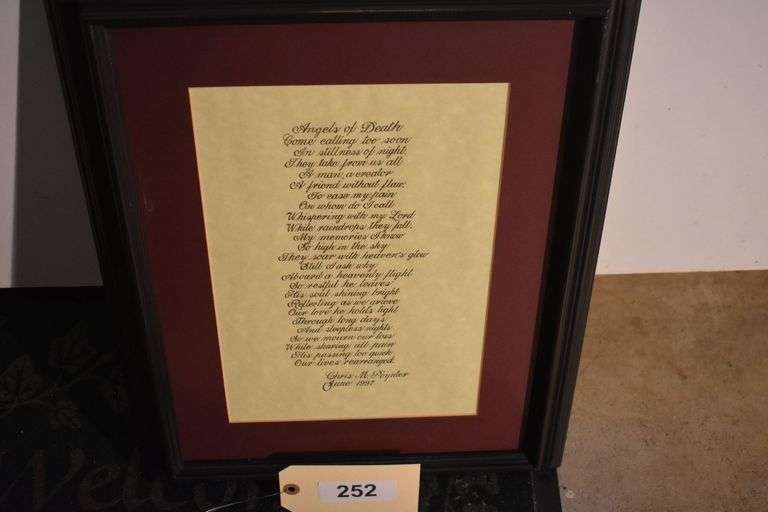 Angels of Death
Come calling too soon
In stillness of night,
They take from us all
A man, a creator
A friend without flaw,
To ease my pain
On whom do I call
Whispering with my Lord
While raindrops they fall,
My memories I know
So high in the sky
They soar with heaven's glow
Still I ask why
Aboard a heavenly flight
So restful he leaves
His soul shining bright
Reflecting as we grieve
Our love he holds tight
Through long days
And sleepless nights
So we mourn our loss
While sharing all pain
His passing too quick
Our lives rearranged.
Chris M. Poynter
June 1997
Welcome
252